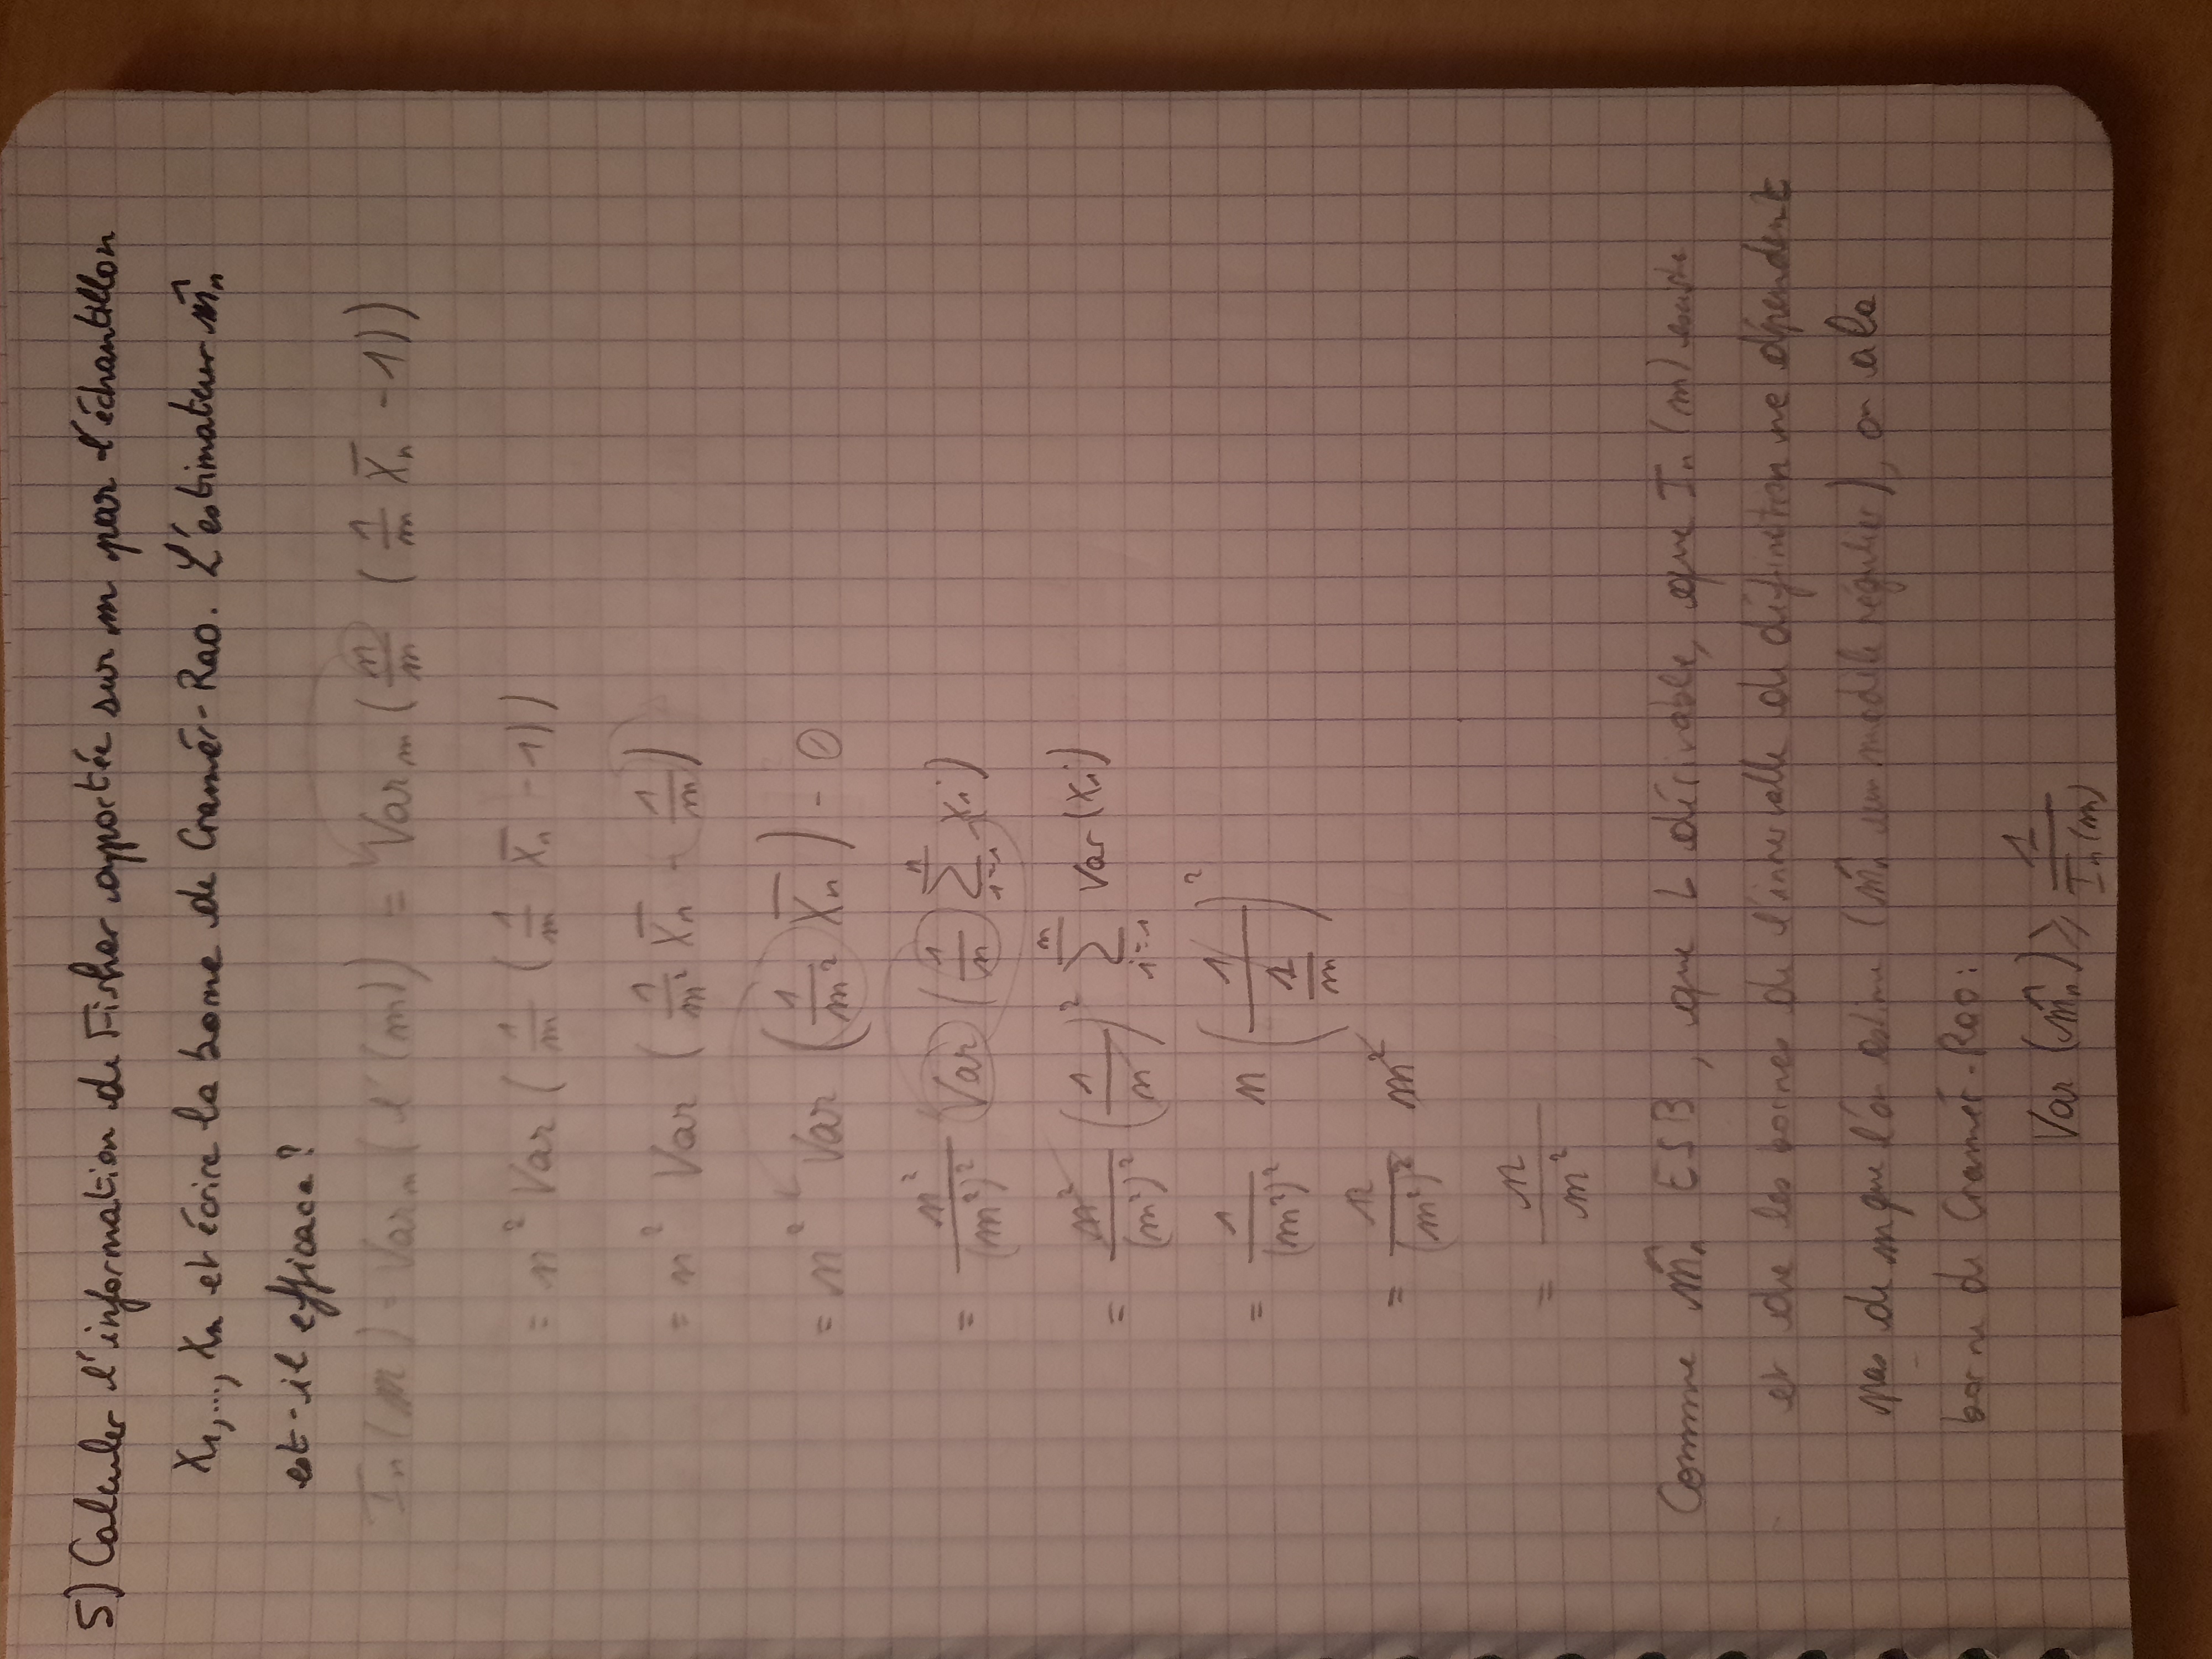 5) Calculer l'information de Fisher apportée sur m par l'échantillon
X₁,..., Xₙ et écrire la borne de Cramér-Rao. L'estimateur m̂ₙ
est-il efficace ?
Iₙ(m) = Varₘ(l'(m)) = Varₘ(n/m (1/m X̄ₙ - 1))
= n² Var(1/m (1/m X̄ₙ - 1))
= n² Var(1/m² X̄ₙ - 1/m)
= n² Var(1/m² X̄ₙ) - 0
= n²/(m²)² Var(1/n ∑ᵢ₌₁ⁿ Xᵢ)
= n²/(m²)² (1/n)² ∑ᵢ₌₁ⁿ Var(Xᵢ)
= 1/(m²)² n (1/(1/m))²
= n/(m²)² m²
= n/m²
Comme m̂ₙ ESB, que L dérivable, que Iₙ(m) existe
et que les bornes de l'intervalle de définition ne dépendent
pas de m que l'on estime (m̂ₙ un modèle régulier), on a la
borne de Cramér-Rao :
Var(m̂ₙ) ⩾ 1/Iₙ(m)